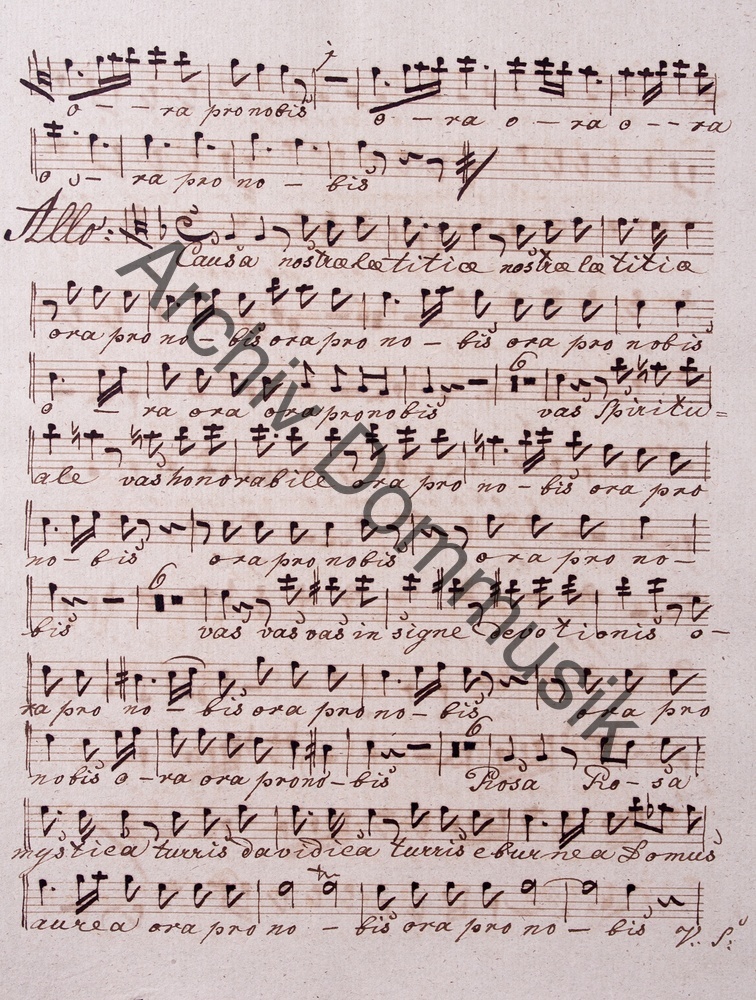 o - - ra pro nobis o - ra o - ra o - - ra
o o - ra pro no - bis
Allo: Causa nostræ lætitiæ nostræ lætitiæ
ora pro no - bis ora pro no - bis ora pro nobis
6
o - ra ora ora pro nobis vas Spiritu=
ale vas honorabile ora pro no - bis ora pro
no - bis ora pro nobis ora pro no -
6
bis vas vas vas in signe devotionis o -
ra pro no - bis ora pro no - bis ora pro
6
nobis o - ra ora pro no - bis Rosa Ro - sa
mystica turris davidica turris eburnea Domus
aurea ora pro no - bis ora pro no - bis V: S:
Archiv Dommusik